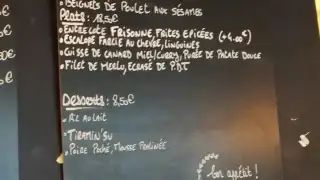 • BEIGNETS DE POULET AUX SÉSAMES
PLATS: 18,50€
• ENTRECÔTE FRISONNE, FRITES ÉPICÉES (+4.00€)
• ESCALOPE FARCIE AU CHÈVRE, LINGUINES
• CUISSE DE CANARD MIEL/CURRY, PURÉE DE PATATE DOUCE
• FILET DE MERLU, ECRASÉ DE P.D.T
DESSERTS: 8,50€
• RIZ AU LAIT
• TIRAMIN'SU
• POIRE POCHÉE, MOUSSE PRALINÉE
bon appétit!